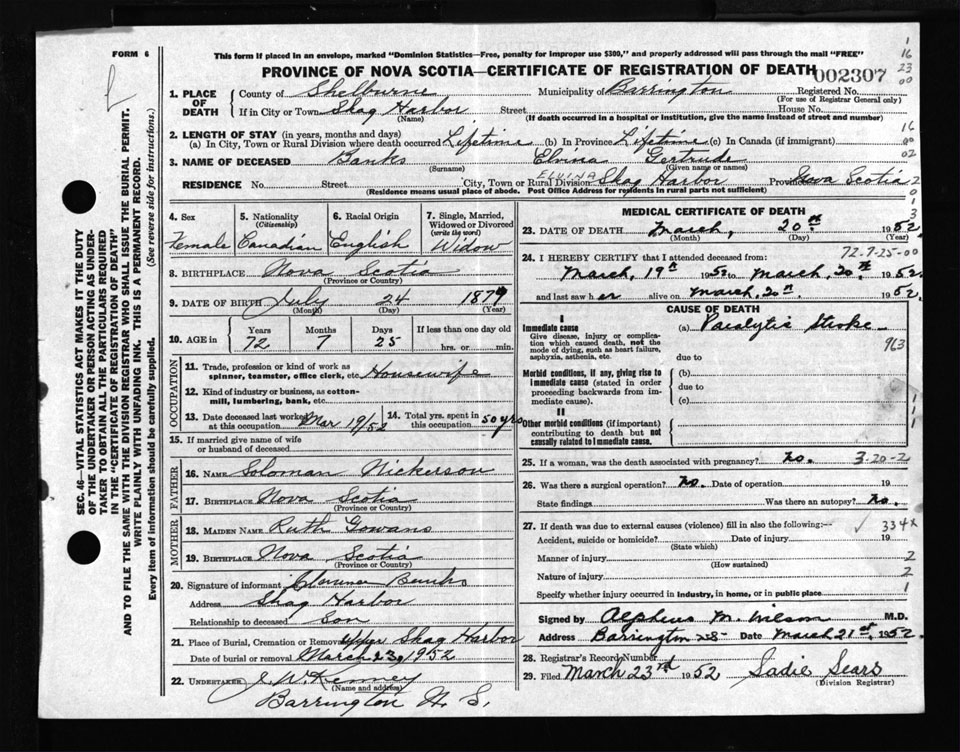 FORM 6
This form if placed in an envelope, marked "Dominion Statistics—Free, penalty for improper use $300," and properly addressed will pass through the mail "FREE"
PROVINCE OF NOVA SCOTIA—CERTIFICATE OF REGISTRATION OF DEATH 002307
1. PLACE OF DEATH County of Shelburne Municipality of Barrington Registered No.
(For use of Registrar General only)
If in City or Town Shag Harbor Street House No.
(Name) (If death occurred in a hospital or institution, give the name instead of street and number)
2. LENGTH OF STAY (in years, months and days)
(a) In City, Town or Rural Division where death occurred Lifetime (b) In Province Lifetime (c) In Canada (if immigrant)
3. NAME OF DECEASED Banks Elvina Gertrude
(Surname) (Given name or names)
ELVINA
RESIDENCE No. Street City, Town or Rural Division Shag Harbor Province Nova Scotia
(Residence means usual place of abode. Post Office Address for residents in rural parts not sufficient)
SEC. 46—VITAL STATISTICS ACT MAKES IT THE DUTY
OF THE UNDERTAKER OR PERSON ACTING AS UNDER-
TAKER TO OBTAIN ALL THE PARTICULARS REQUIRED
IN THE "CERTIFICATE OF REGISTRATION OF DEATH"
AND TO FILE THE SAME WITH THE DIVISION REGISTRAR WHO SHALL ISSUE THE BURIAL PERMIT.
WRITE PLAINLY WITH UNFADING INK. THIS IS A PERMANENT RECORD.
Every item of information should be carefully supplied. (See reverse side for instructions.)
4. Sex Female
5. Nationality (Citizenship) Canadian
6. Racial Origin English
7. Single, Married, Widowed or Divorced (write the word) Widow
8. BIRTHPLACE Nova Scotia
(Province or Country)
9. DATE OF BIRTH July 24 1879
(Month) (Day) (Year)
10. AGE in Years Months Days If less than one day old
72 7 25 hrs. or min.
OCCUPATION
11. Trade, profession or kind of work as
spinner, teamster, office clerk, etc. Housewife
12. Kind of industry or business, as cotton-
mill, lumbering, bank, etc.
13. Date deceased last worked at this occupation Mar 19/52
14. Total yrs. spent in this occupation 50 yrs
15. If married give name of wife
or husband of deceased
FATHER
16. NAME Soloman Nickerson
17. BIRTHPLACE Nova Scotia
(Province or Country)
MOTHER
18. MAIDEN NAME Ruth Gowans
19. BIRTHPLACE Nova Scotia
(Province or Country)
20. Signature of informant Banks
Address Shag Harbor
Relationship to deceased Son
21. Place of Burial, Cremation or Removal Upper Shag Harbor
Date of burial or removal March 23, 1952
22. UNDERTAKER J. W. Kenney
(Name and address)
Barrington N. S.
MEDICAL CERTIFICATE OF DEATH
23. DATE OF DEATH March, 20th 1952
(Month) (Day) (Year)
72-7-25-00
24. I HEREBY CERTIFY that I attended deceased from:
March, 19th 1952 to March, 20th 1952
and last saw her alive on March, 20th 1952.
CAUSE OF DEATH
I
Immediate cause
Give disease, injury or complica-
tion which caused death, not the
mode of dying, such as heart failure,
asphyxia, asthenia, etc.
(a) Paralytic Stroke
963
due to
Morbid conditions, if any, giving rise to
immediate cause (stated in order
proceeding backwards from im-
mediate cause).
(b)
due to
(c)
II
Other morbid conditions (if important)
contributing to death but not
causally related to immediate cause.
25. If a woman, was the death associated with pregnancy? No. 3-20-2
26. Was there a surgical operation? No. Date of operation 19
State findings Was there an autopsy? No.
27. If death was due to external causes (violence) fill in also the following:— ✓ 334x
Accident, suicide or homicide? Date of injury 19
(State which)
Manner of injury 2
(How sustained)
Nature of injury 2
Specify whether injury occurred in industry, in home, or in public place 1
Signed by Alpheus M. Wilson M.D.
Address Barrington Date March 21st 1952.
28. Registrar's Record Number
29. Filed March 23rd 1952 Sadie Sears
(Division Registrar)